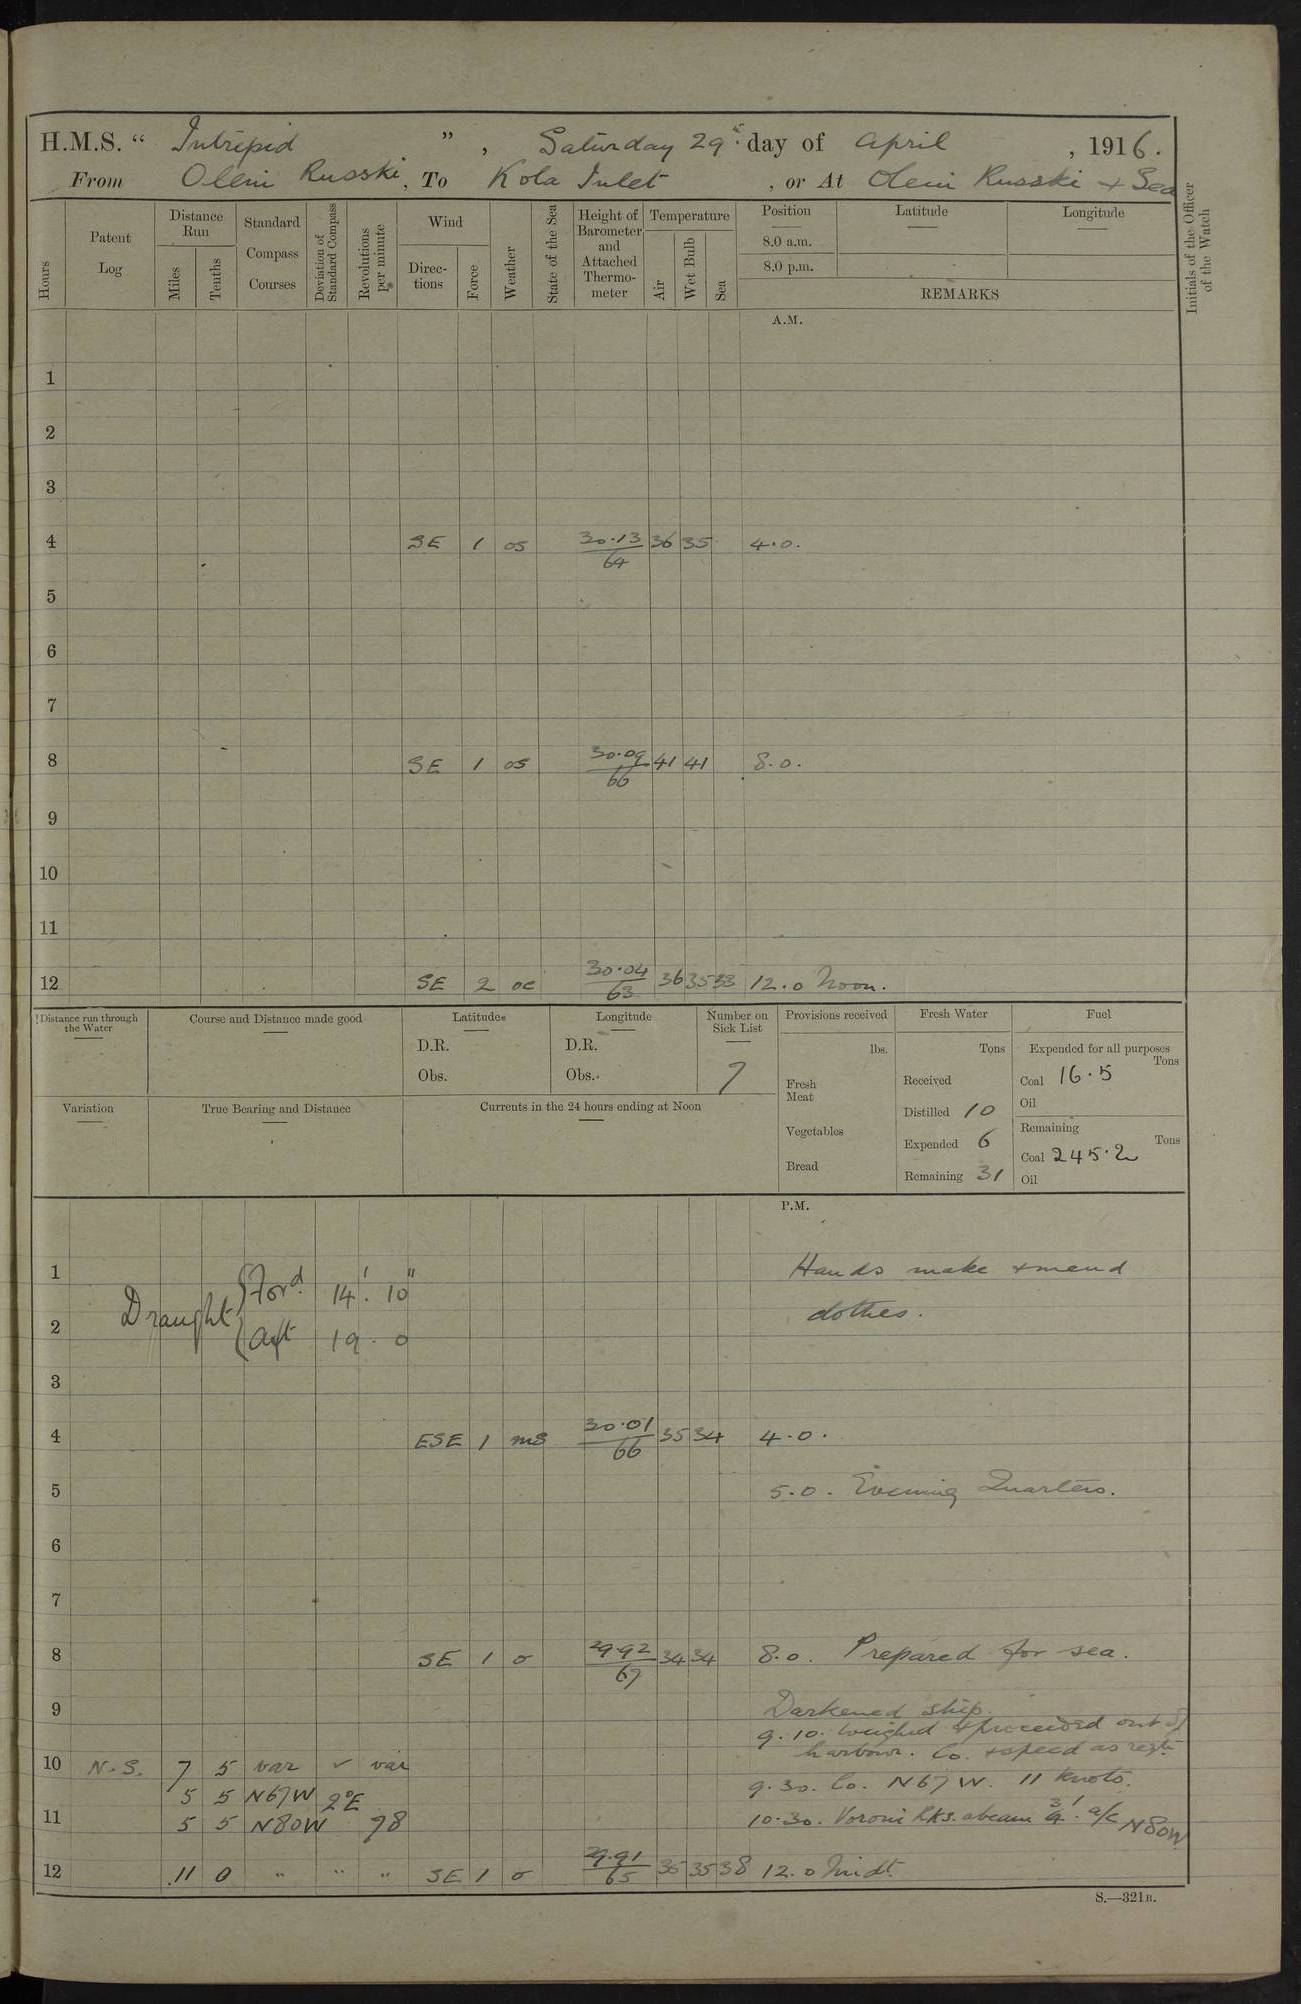 H.M.S. “ Intrepid ” , Saturday 29th day of April , 1916.
From Oleni Russski, To Kola Inlet , or At Oleni Russki + Sea
Hours
Patent Log
Distance Run
Miles
Tenths
Standard Compass Courses
Deviation of Standard Compass
Revolutions per minute
Wind
Direc- tions
Force
Weather
State of the Sea
Height of Barometer and Attached Thermo- meter
Temperature
Air
Wet Bulb
Sea
Position
8.0 a.m.
8.0 p.m.
Latitude
Longitude
REMARKS
Initials of the Officer of the Watch
A.M.
1
2
3
4 SE 1 os 30.13 36 35 4.0.
64
5
6
7
8 SE 1 os 30.09 41 41 8.0.
66
9
10
11
12 SE 2 oc 30.04 36 35 38 12.0 Noon.
63
Distance run through the Water
Course and Distance made good
Latitude
D.R.
Obs.
Longitude
D.R.
Obs.
Number on Sick List
7
Provisions received
lbs.
Fresh Meat
Vegetables
Bread
Fresh Water
Tons
Received
Distilled 10
Expended 6
Remaining 31
Fuel
Expended for all purposes
Tons
Coal 16.5
Oil
Remaining
Tons
Coal 245.2
Oil
Variation
True Bearing and Distance
Currents in the 24 hours ending at Noon
P.M.
1 Hands make + mend
Draught { Ford. 14' . 10"
2 clothes.
Aft 19 . 0
3
4 ESE 1 ms 30.01 35 34 4.0.
66
5 5.0. Evening Quarters.
6
7
8 SE 1 o 29.92 34 34 8.0. Prepared for sea.
67
9 Darkened ship.
9.10. Weighed + proceeded out of
harbour. Co. + speed as reqte
10 N.S. 7 5 var ✓ var
5 5 N67W 2°E 9.30. Co. N67W. 11 Knots.
11 5 5 N80W 98 10.30. Voroni Rks. abeam 3/4'. a/c N80W
12 11 0 " " " SE 1 o 29.91 35 35 38 12.0 Midt.
65
S.—321B.